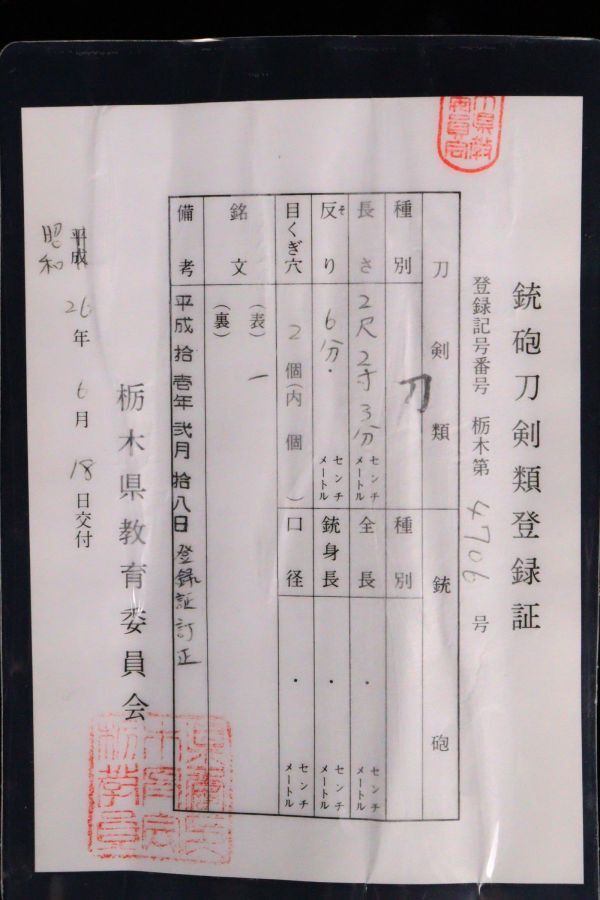 銃砲刀剣類登録証
登録記号番号 栃木第 4706 号
刀剣類 銃砲
種別 刀 種別
長さ 2尺2寸3分 センチメートル 全長 ・ センチメートル
反り そ 6分. センチメートル 銃身長 ・ センチメートル
目くぎ穴 2個(内 個) 口径 ・ センチメートル
銘文 (表) 一
(裏)
備考 平成拾壱年弐月拾八日 登録証訂正
栃木県教育委員会
平成 昭和 26年 6月 18日交付